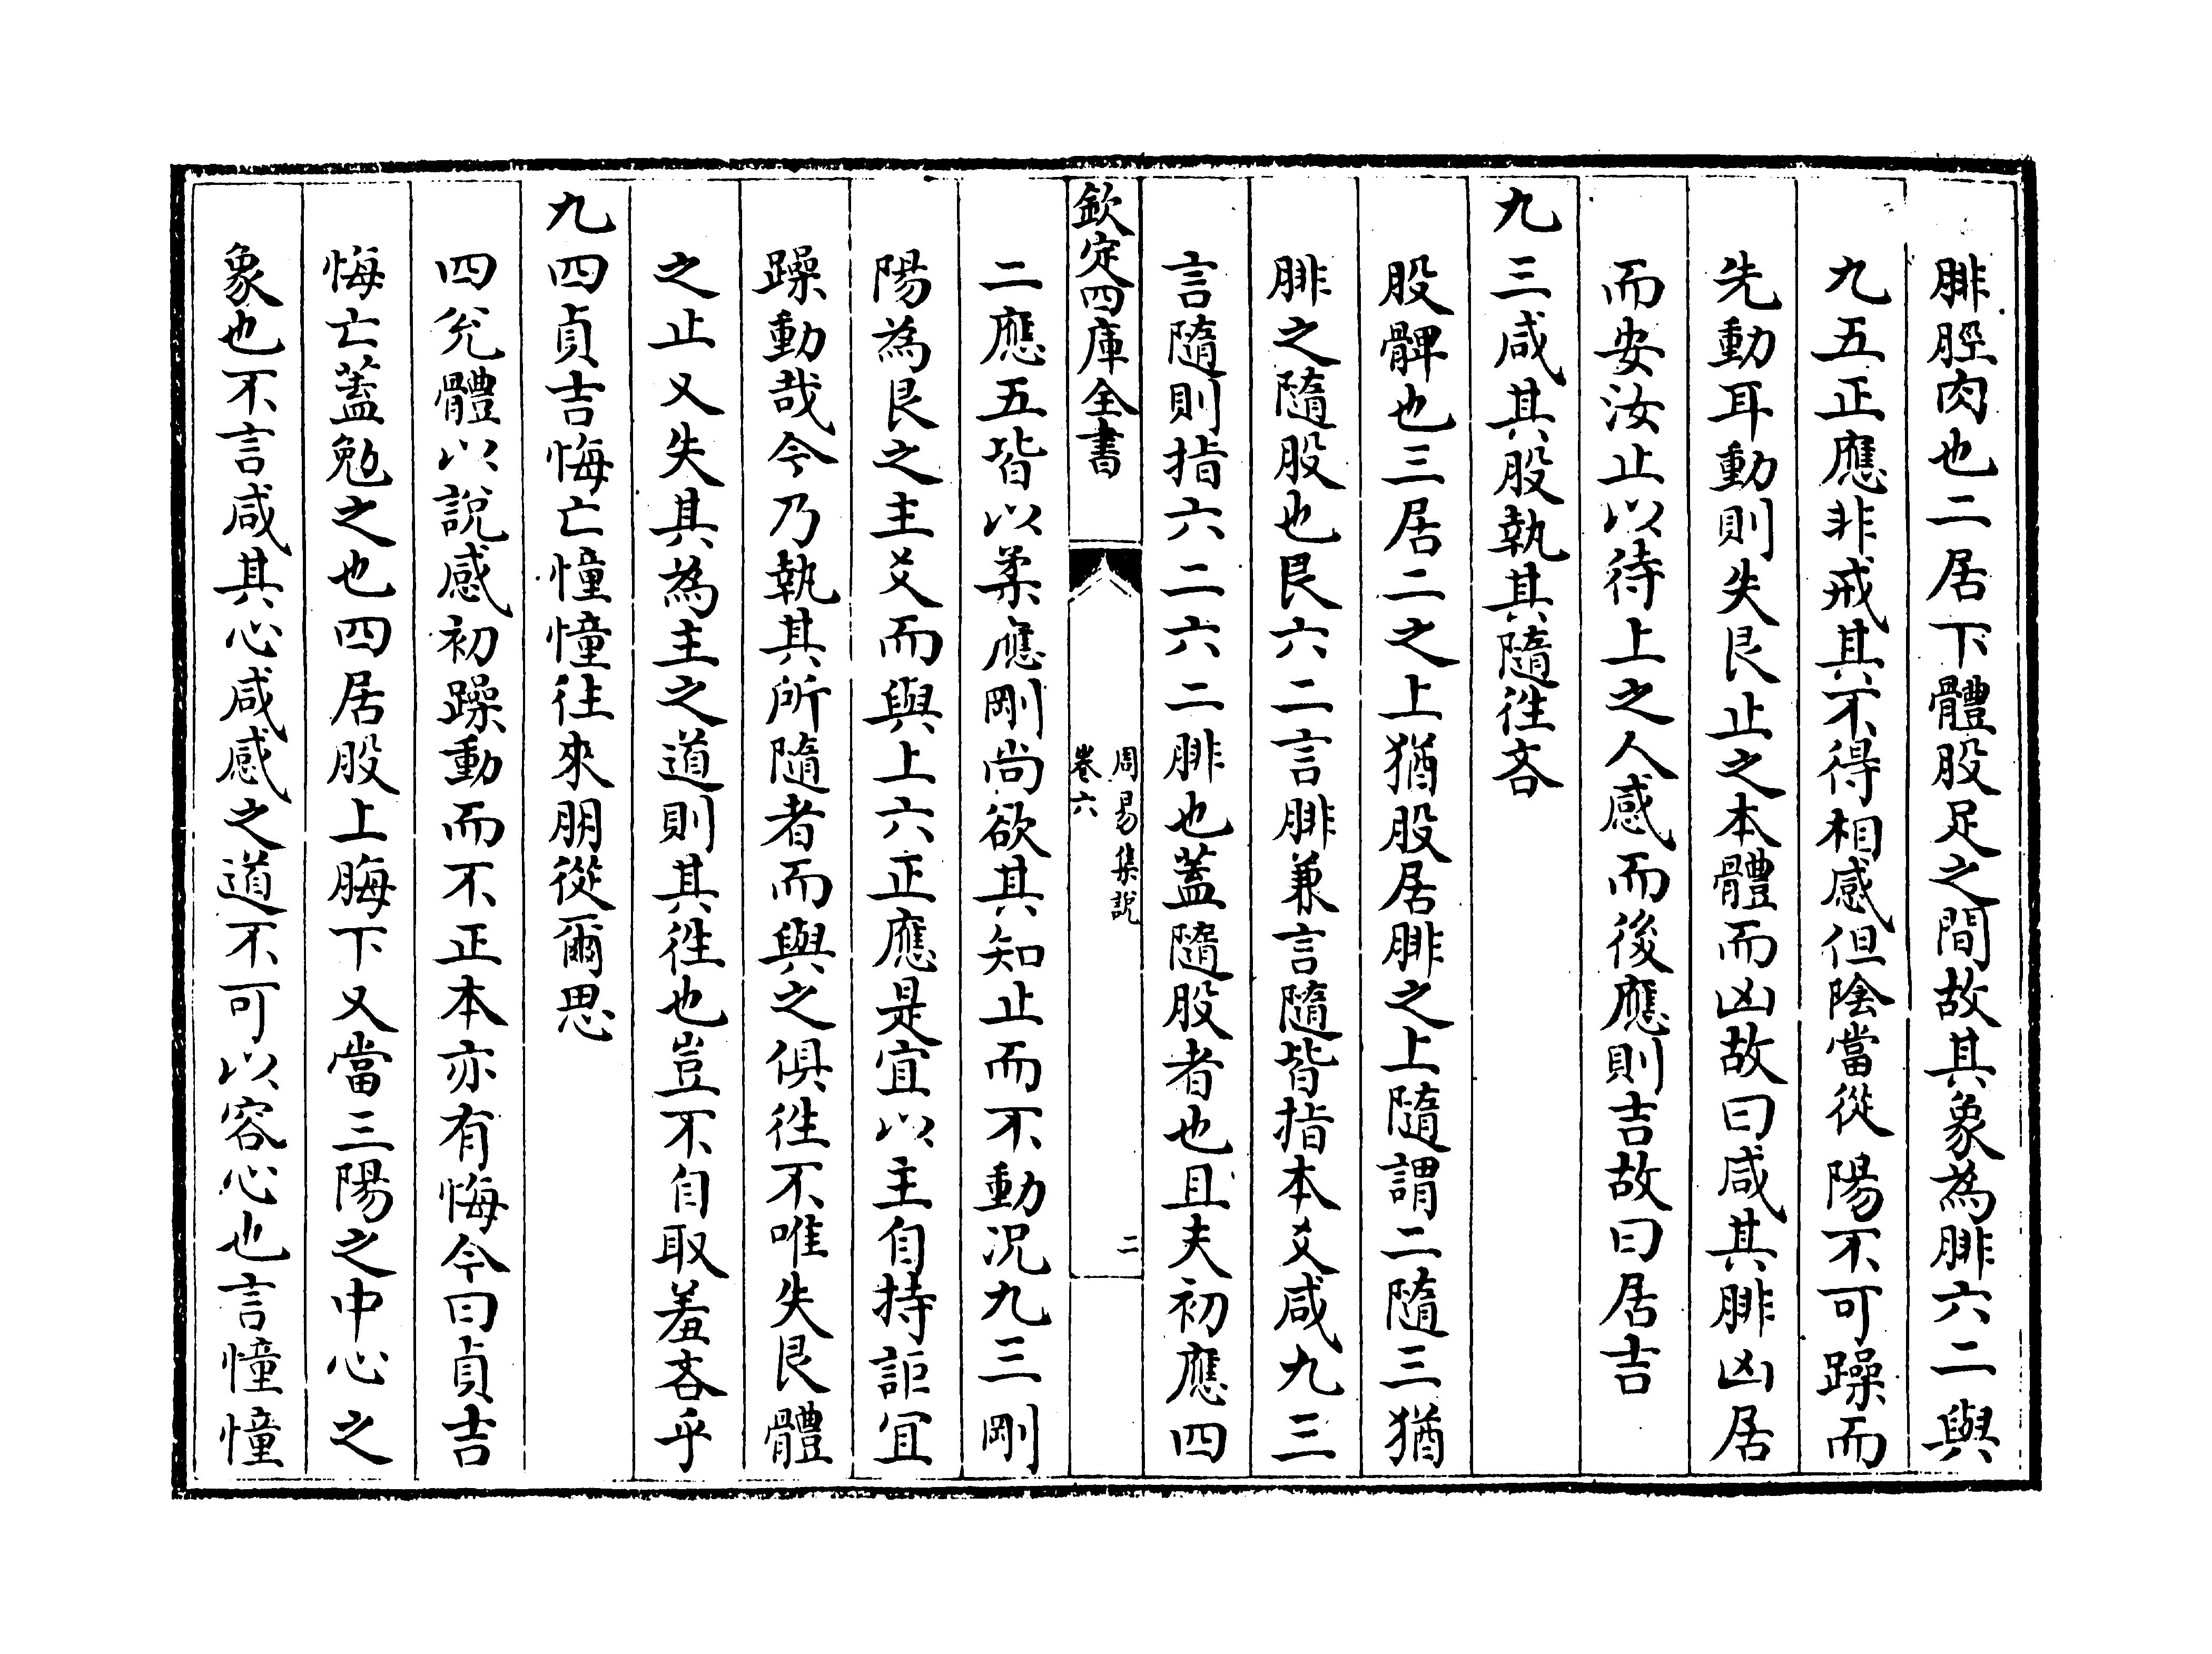 腓脛肉也二居下體股足之間故其象為腓六二與
九五正應非戒其不得相感但陰當從陽不可躁而
先動耳動則失艮止之本體而凶故曰咸其腓凶居
而安汝止以待上之人感而後應則吉故曰居吉
九三咸其股執其隨徃吝
股髀也三居二之上猶股居腓之上隨謂二隨三猶
腓之隨股也艮六二言腓兼言隨皆指本爻咸九三
言隨則指六二六二腓也蓋隨股者也且夫初應四
欽定四庫全書
周易集說
卷六
二
二應五皆以柔應剛尚欲其知止而不動况九三剛
陽為艮之主爻而與上六正應是宜以主自持詎宜
躁動哉今乃執其所隨者而與之俱徃不唯失艮體
之止又失其為主之道則其徃也豈不自取羞吝乎
九四貞吉悔亡憧憧徃來朋從爾思
四兊體以說感初躁動而不正本亦有悔今曰貞吉
悔亡蓋勉之也四居股上脢下又當三陽之中心之
象也不言咸其心咸感之道不可以容心也言憧憧